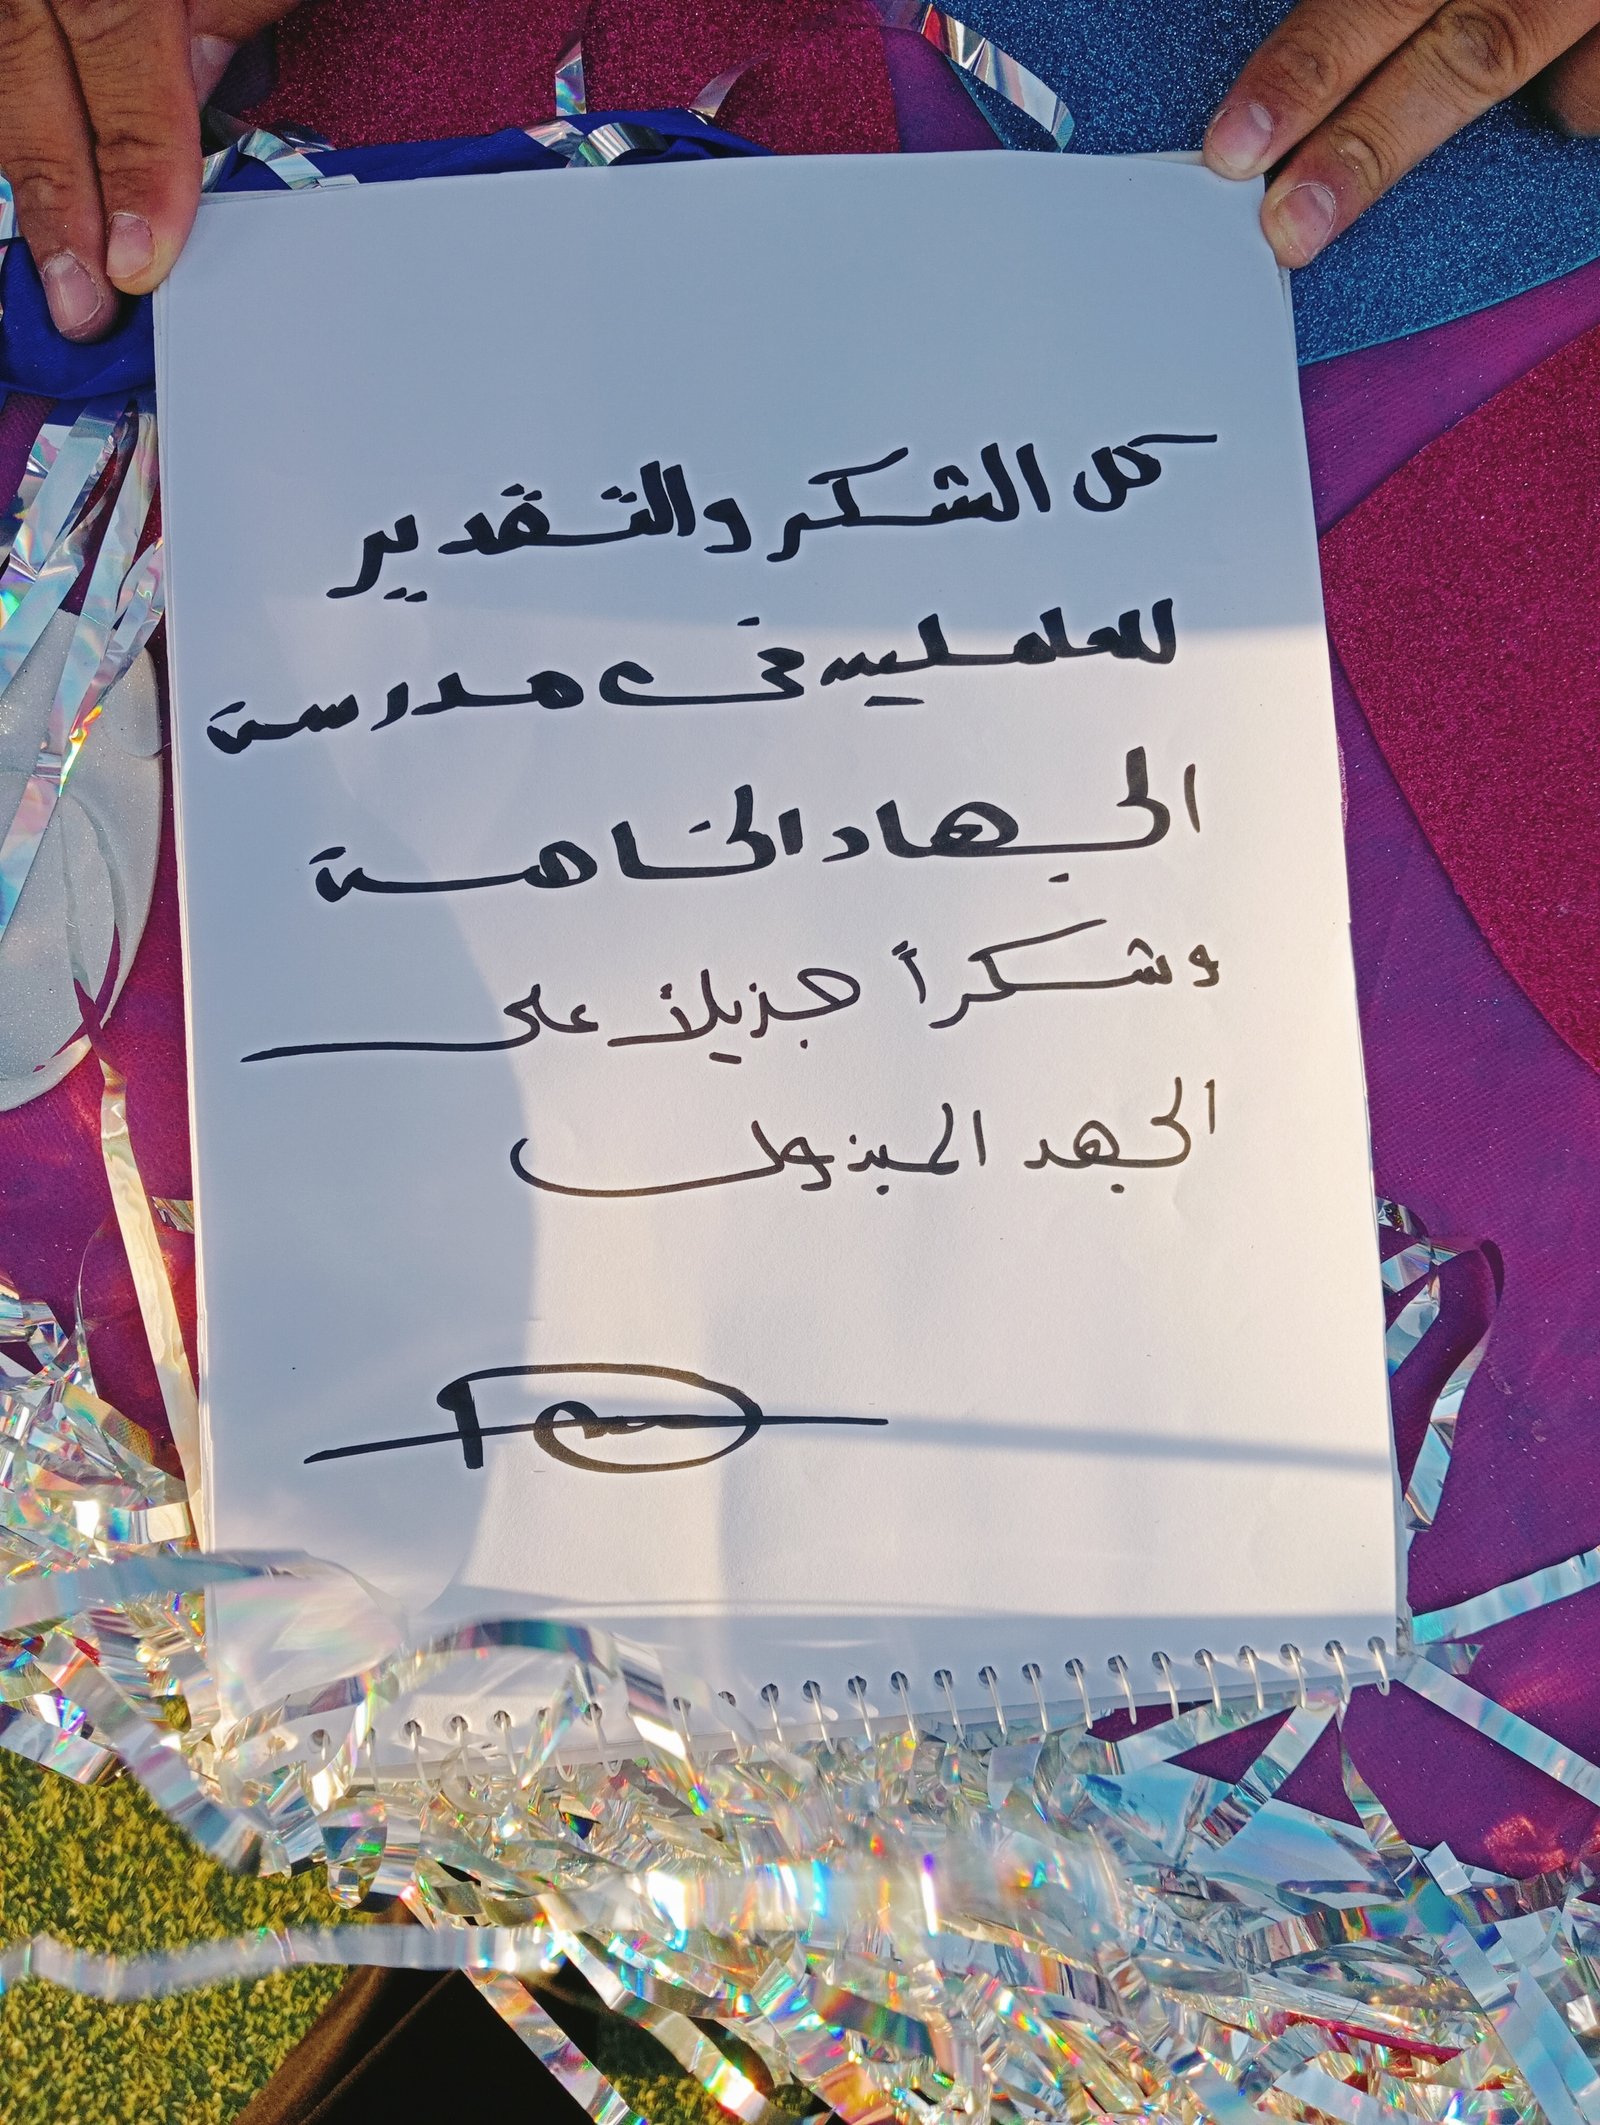 كل الشكر والتقدير
للعاملين في مدرسة
الجهاد الخاصة
وشكراً جزيلاً على
الجهد المبذول